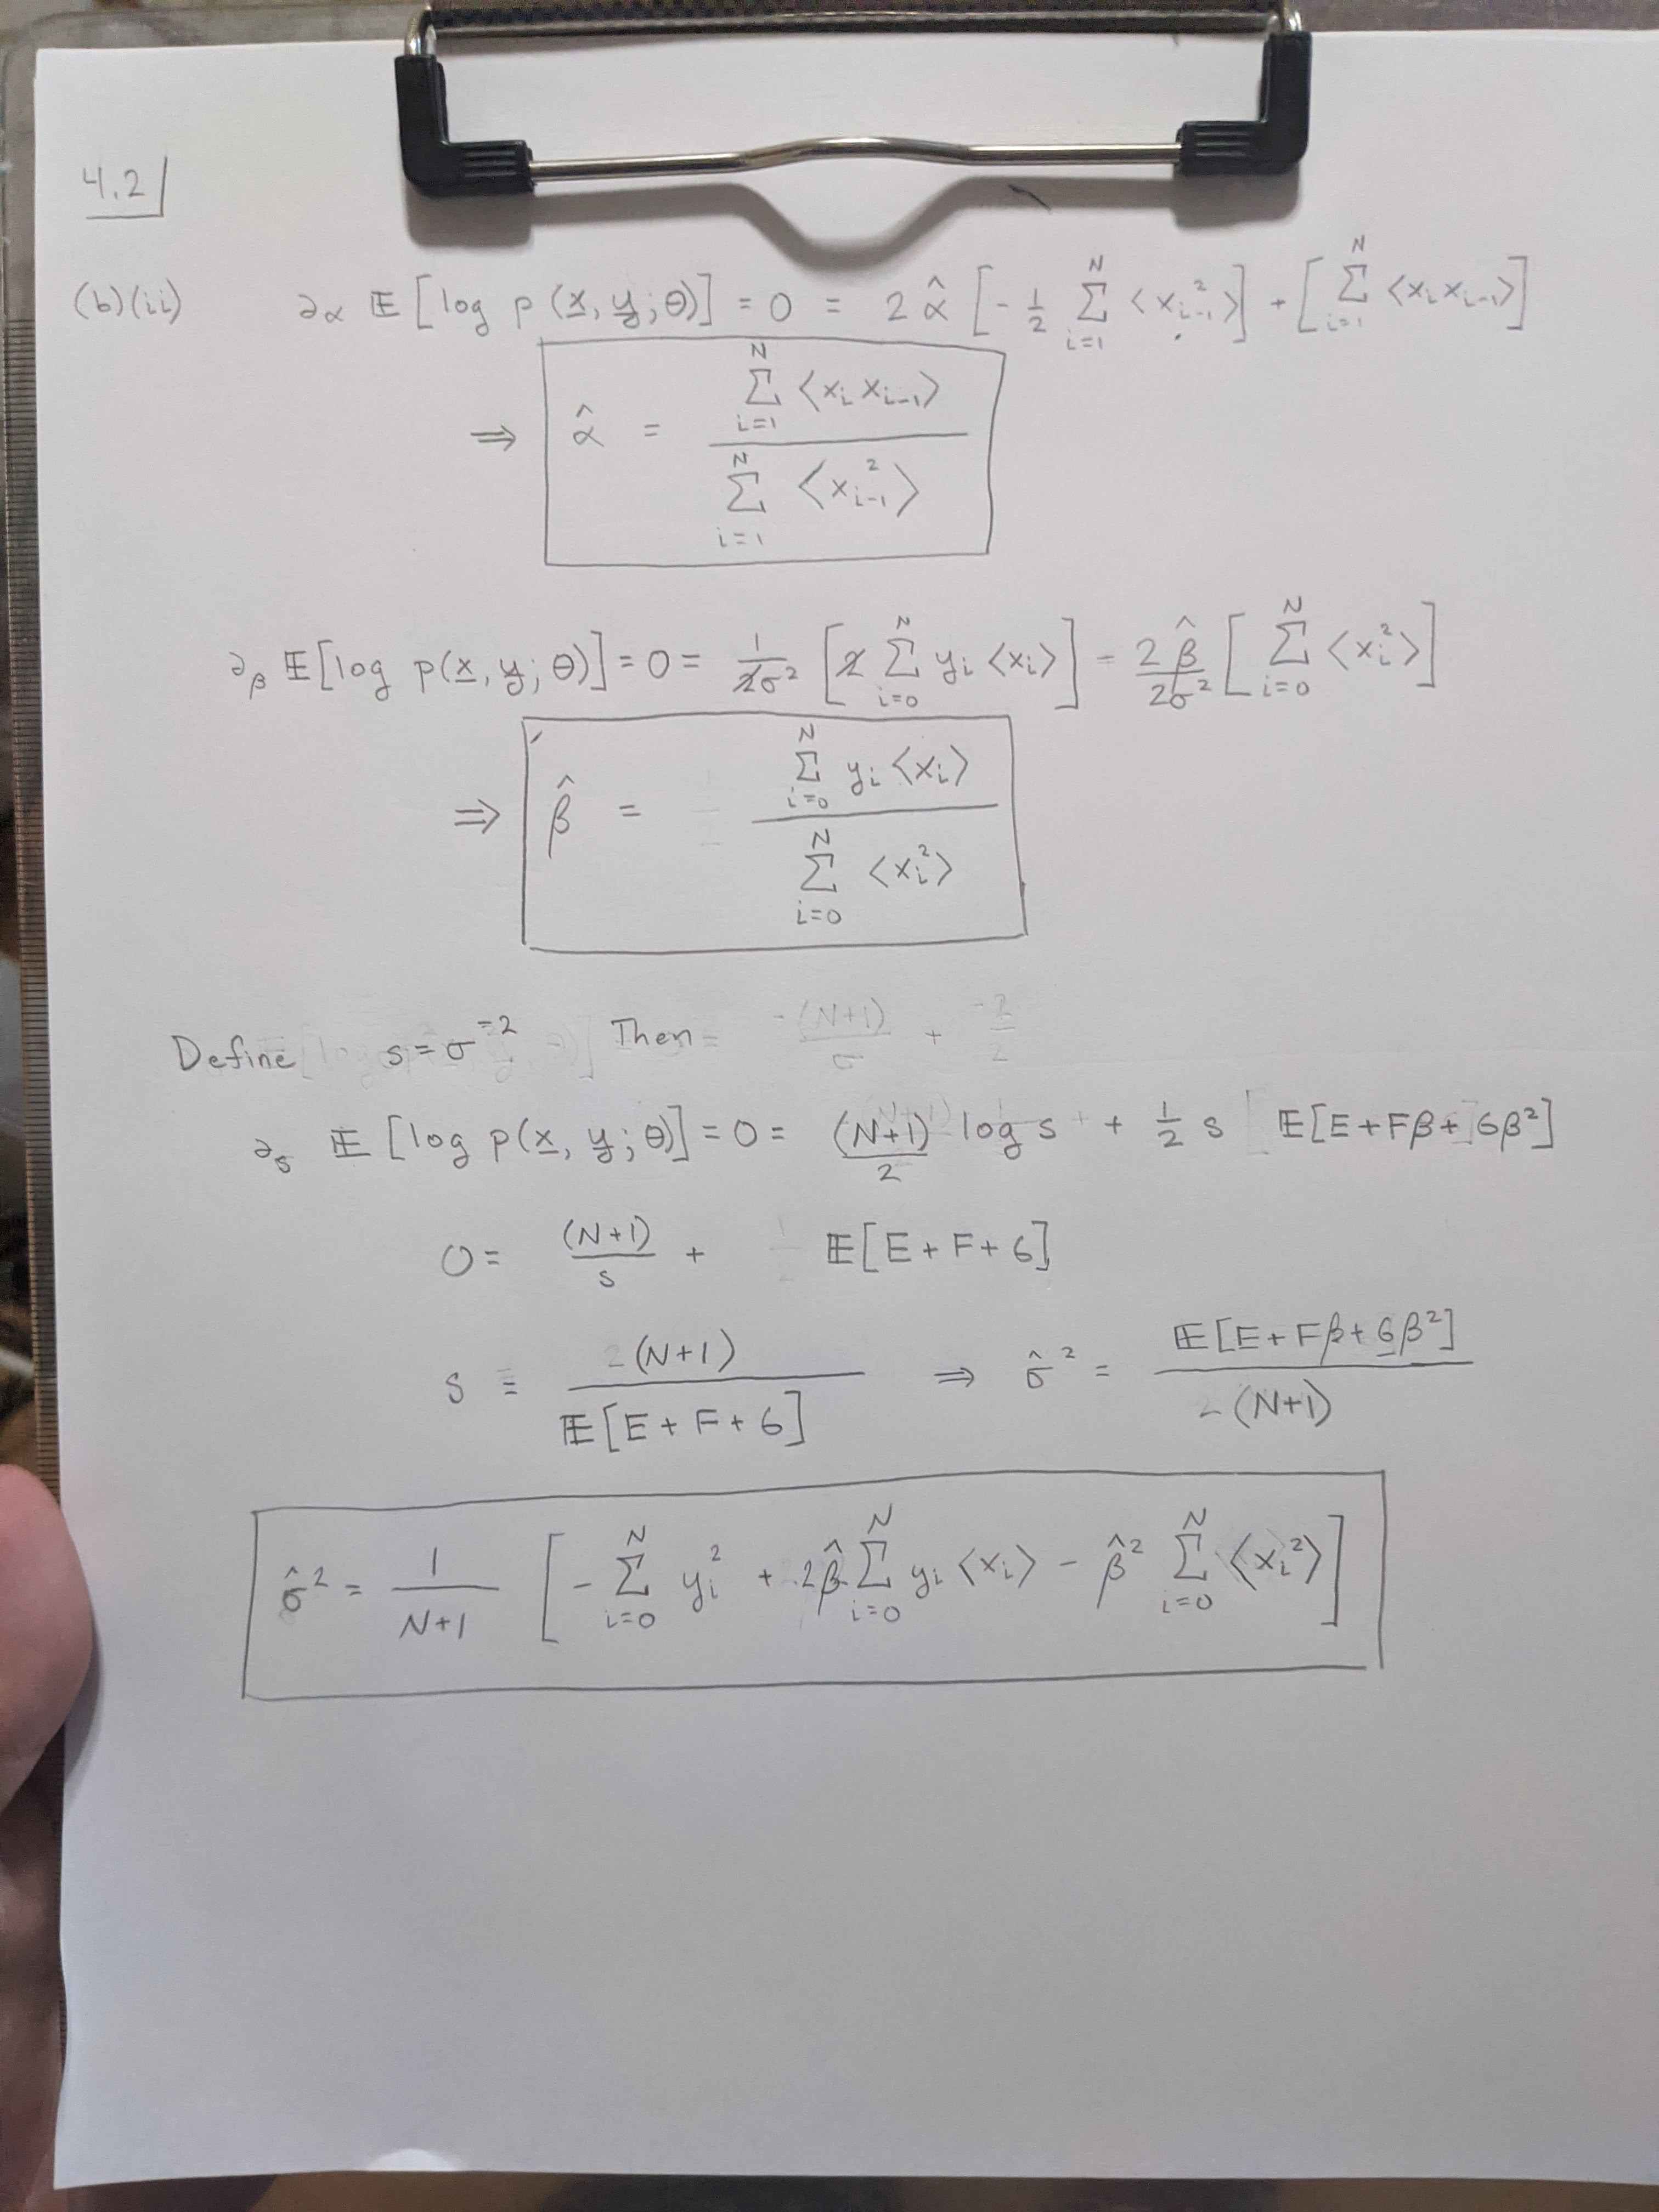 4.2
(b)(ii) ∂α 𝔼[log p(x, y; θ)] = 0 = 2 α̂ [-1/2 Σ_{i=1}^{N} <x_{i-1}^2>] + [Σ_{i=1}^{N} <x_i x_{i-1}>]
⇒ α̂ = Σ_{i=1}^{N} <x_i x_{i-1}> / Σ_{i=1}^{N} <x_{i-1}^2>
∂β 𝔼[log p(x, y; θ)] = 0 = 1/2σ^2 [2 Σ_{i=0}^{N} y_i <x_i>] - 2β̂/2σ^2 [Σ_{i=0}^{N} <x_i^2>]
⇒ β̂ = Σ_{i=0}^{N} y_i <x_i> / Σ_{i=0}^{N} <x_i^2>
Define s = σ^{-2} Then
∂s 𝔼[log p(x, y; θ)] = 0 = (N+1)/2 log s + 1/2 s 𝔼[E + Fβ + Gβ^2]
0 = (N+1)/s + 𝔼[E + F + G]
s = -(N+1) / 𝔼[E + F + G] ⇒ σ̂^2 = 𝔼[E + Fβ + Gβ^2] / -(N+1)
σ̂^2 = 1/(N+1) [-Σ_{i=0}^{N} y_i^2 + 2β̂ Σ_{i=0}^{N} y_i <x_i> - β̂^2 Σ_{i=0}^{N} <x_i^2>]